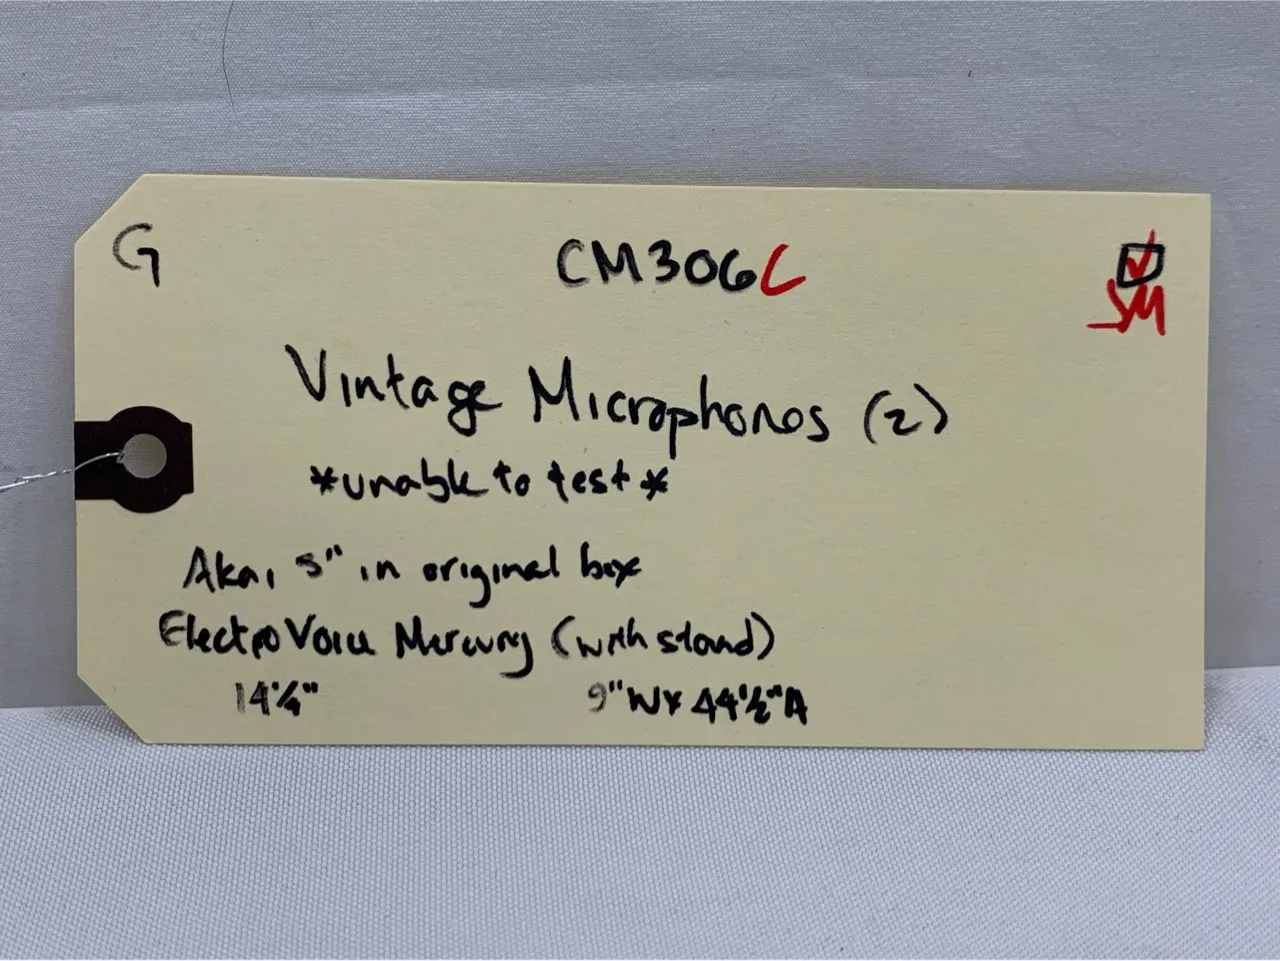 G CM306C
SM
Vintage Microphones (2)
*unable to test*
Akai 5" in original box
Electro Voice Mercury (with stand)
14¼" 9"W x 44½"H